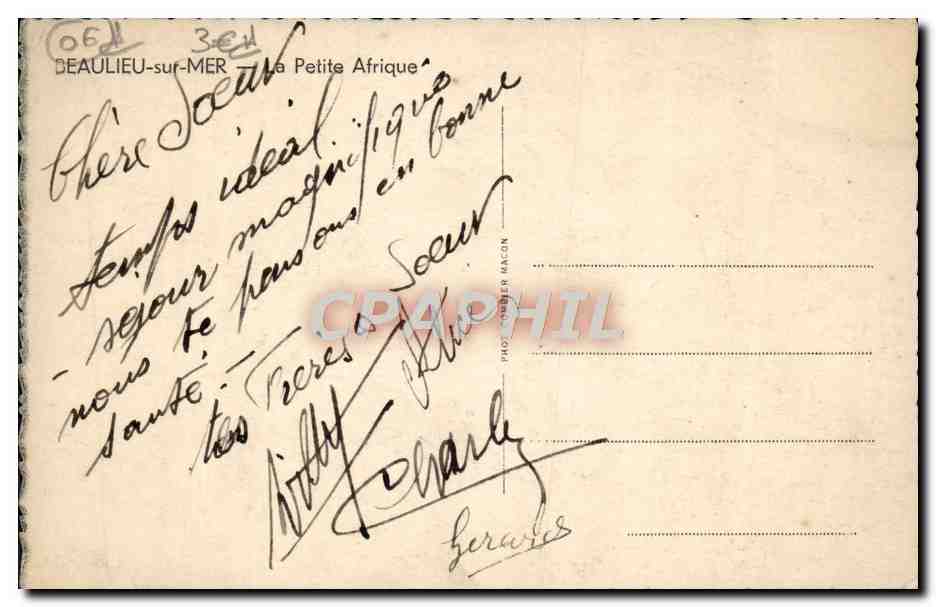 06
3€
BEAULIEU-sur-MER — La Petite Afrique
Chère Soeur
temps idéal.
- séjour magnifique
nous te pensons en bonne
santé.
tes Frères Soeur
Charly
Gerard
CPAPHIL
PHOT. COMBIER MACON